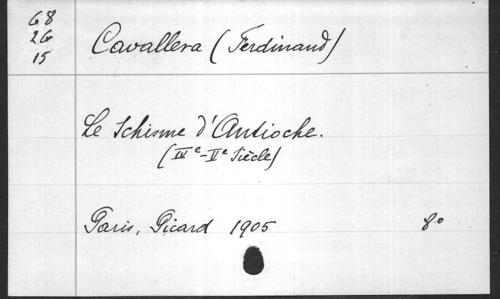 68
26
15
Cavallera (Ferdinand)
Le Schisme d'Antioche.
(IVe-Ve Siècle)
Paris, Picard 1905 8o